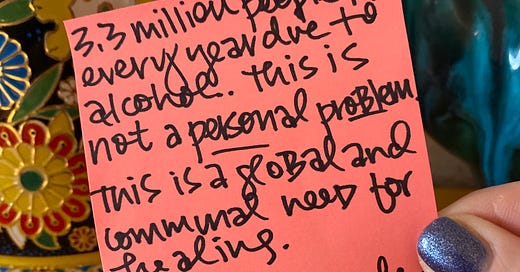 3.3 million people
every year due to
alcohol. This is
not a personal problem.
This is a global and
communal need for
healing.